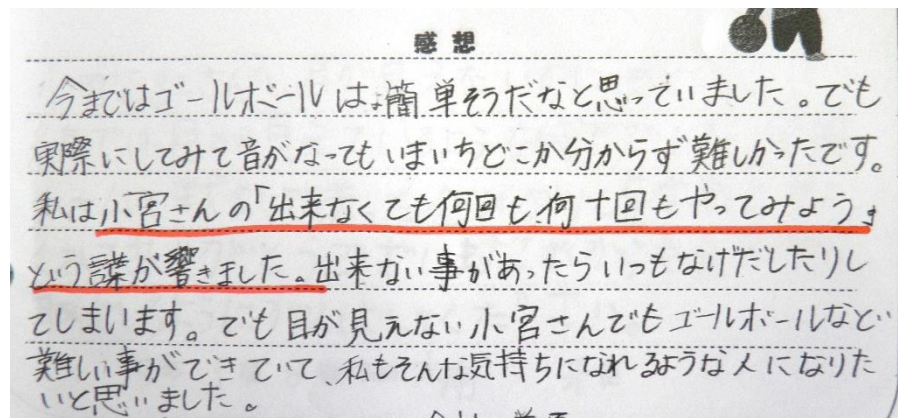 感想
今まではゴールボールは簡単そうだなと思っていました。でも
実際にしてみて音がなってもいまいちどこか分からず難しかったです。
私は小宮さんの「出来なくても何回も何十回もやってみよう」
という言葉が響きました。出来ない事があったらいつもなげだしたりし
てしまいます。でも目が見えない小宮さんでもゴールボールなど
難しい事ができていて、私もそんな気持ちになれるような人になりた
いと思いました。